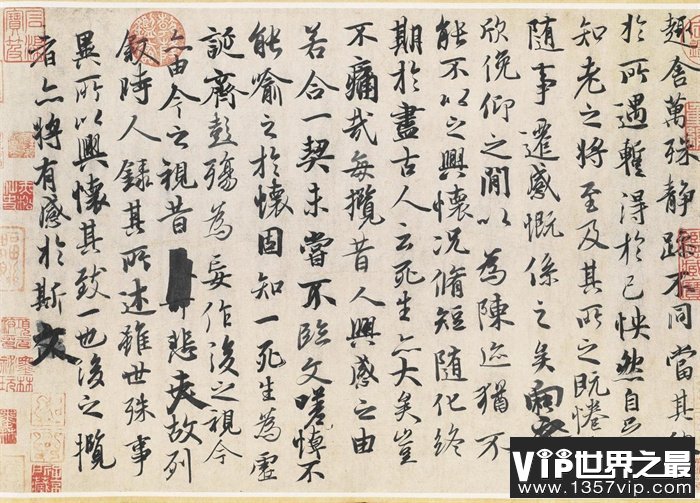 趣舍萬殊静躁不同當其
於所遇蹔得於己怏然自足
知老之將至及其所之既惓
隨事遷感慨係之矣向之
欣俛仰之閒以為陳迹猶不
能不以之興懷況脩短隨化終
期於盡古人云死生亦大矣豈
不痛哉每攬昔人興感之由
若合一契未嘗不臨文嗟悼不
能喻之於懷固知一死生為虛
誕齊彭殤為妄作後之視今
亦由今之視昔悲夫故列
敘時人錄其所述雖世殊事
異所以興懷其致一也後之攬
者亦將有感於斯文
VIP世界之最
www.1357vip.com